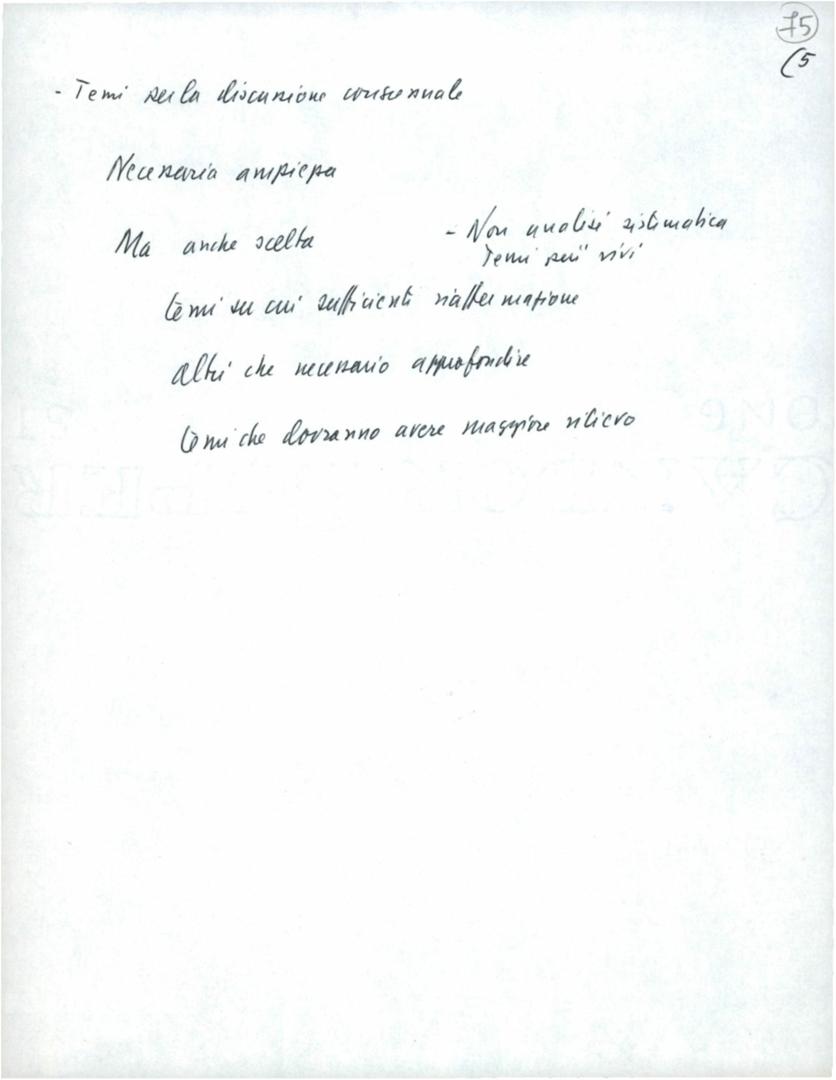 75
(5
- Temi per la discussione congressuale
Necessaria ampiezza
Ma anche scelta
- Non analisi sistematica
Temi più vivi
temi su cui sufficiente riaffermazione
altri che necessario approfondire
temi che dovranno avere maggiore rilievo